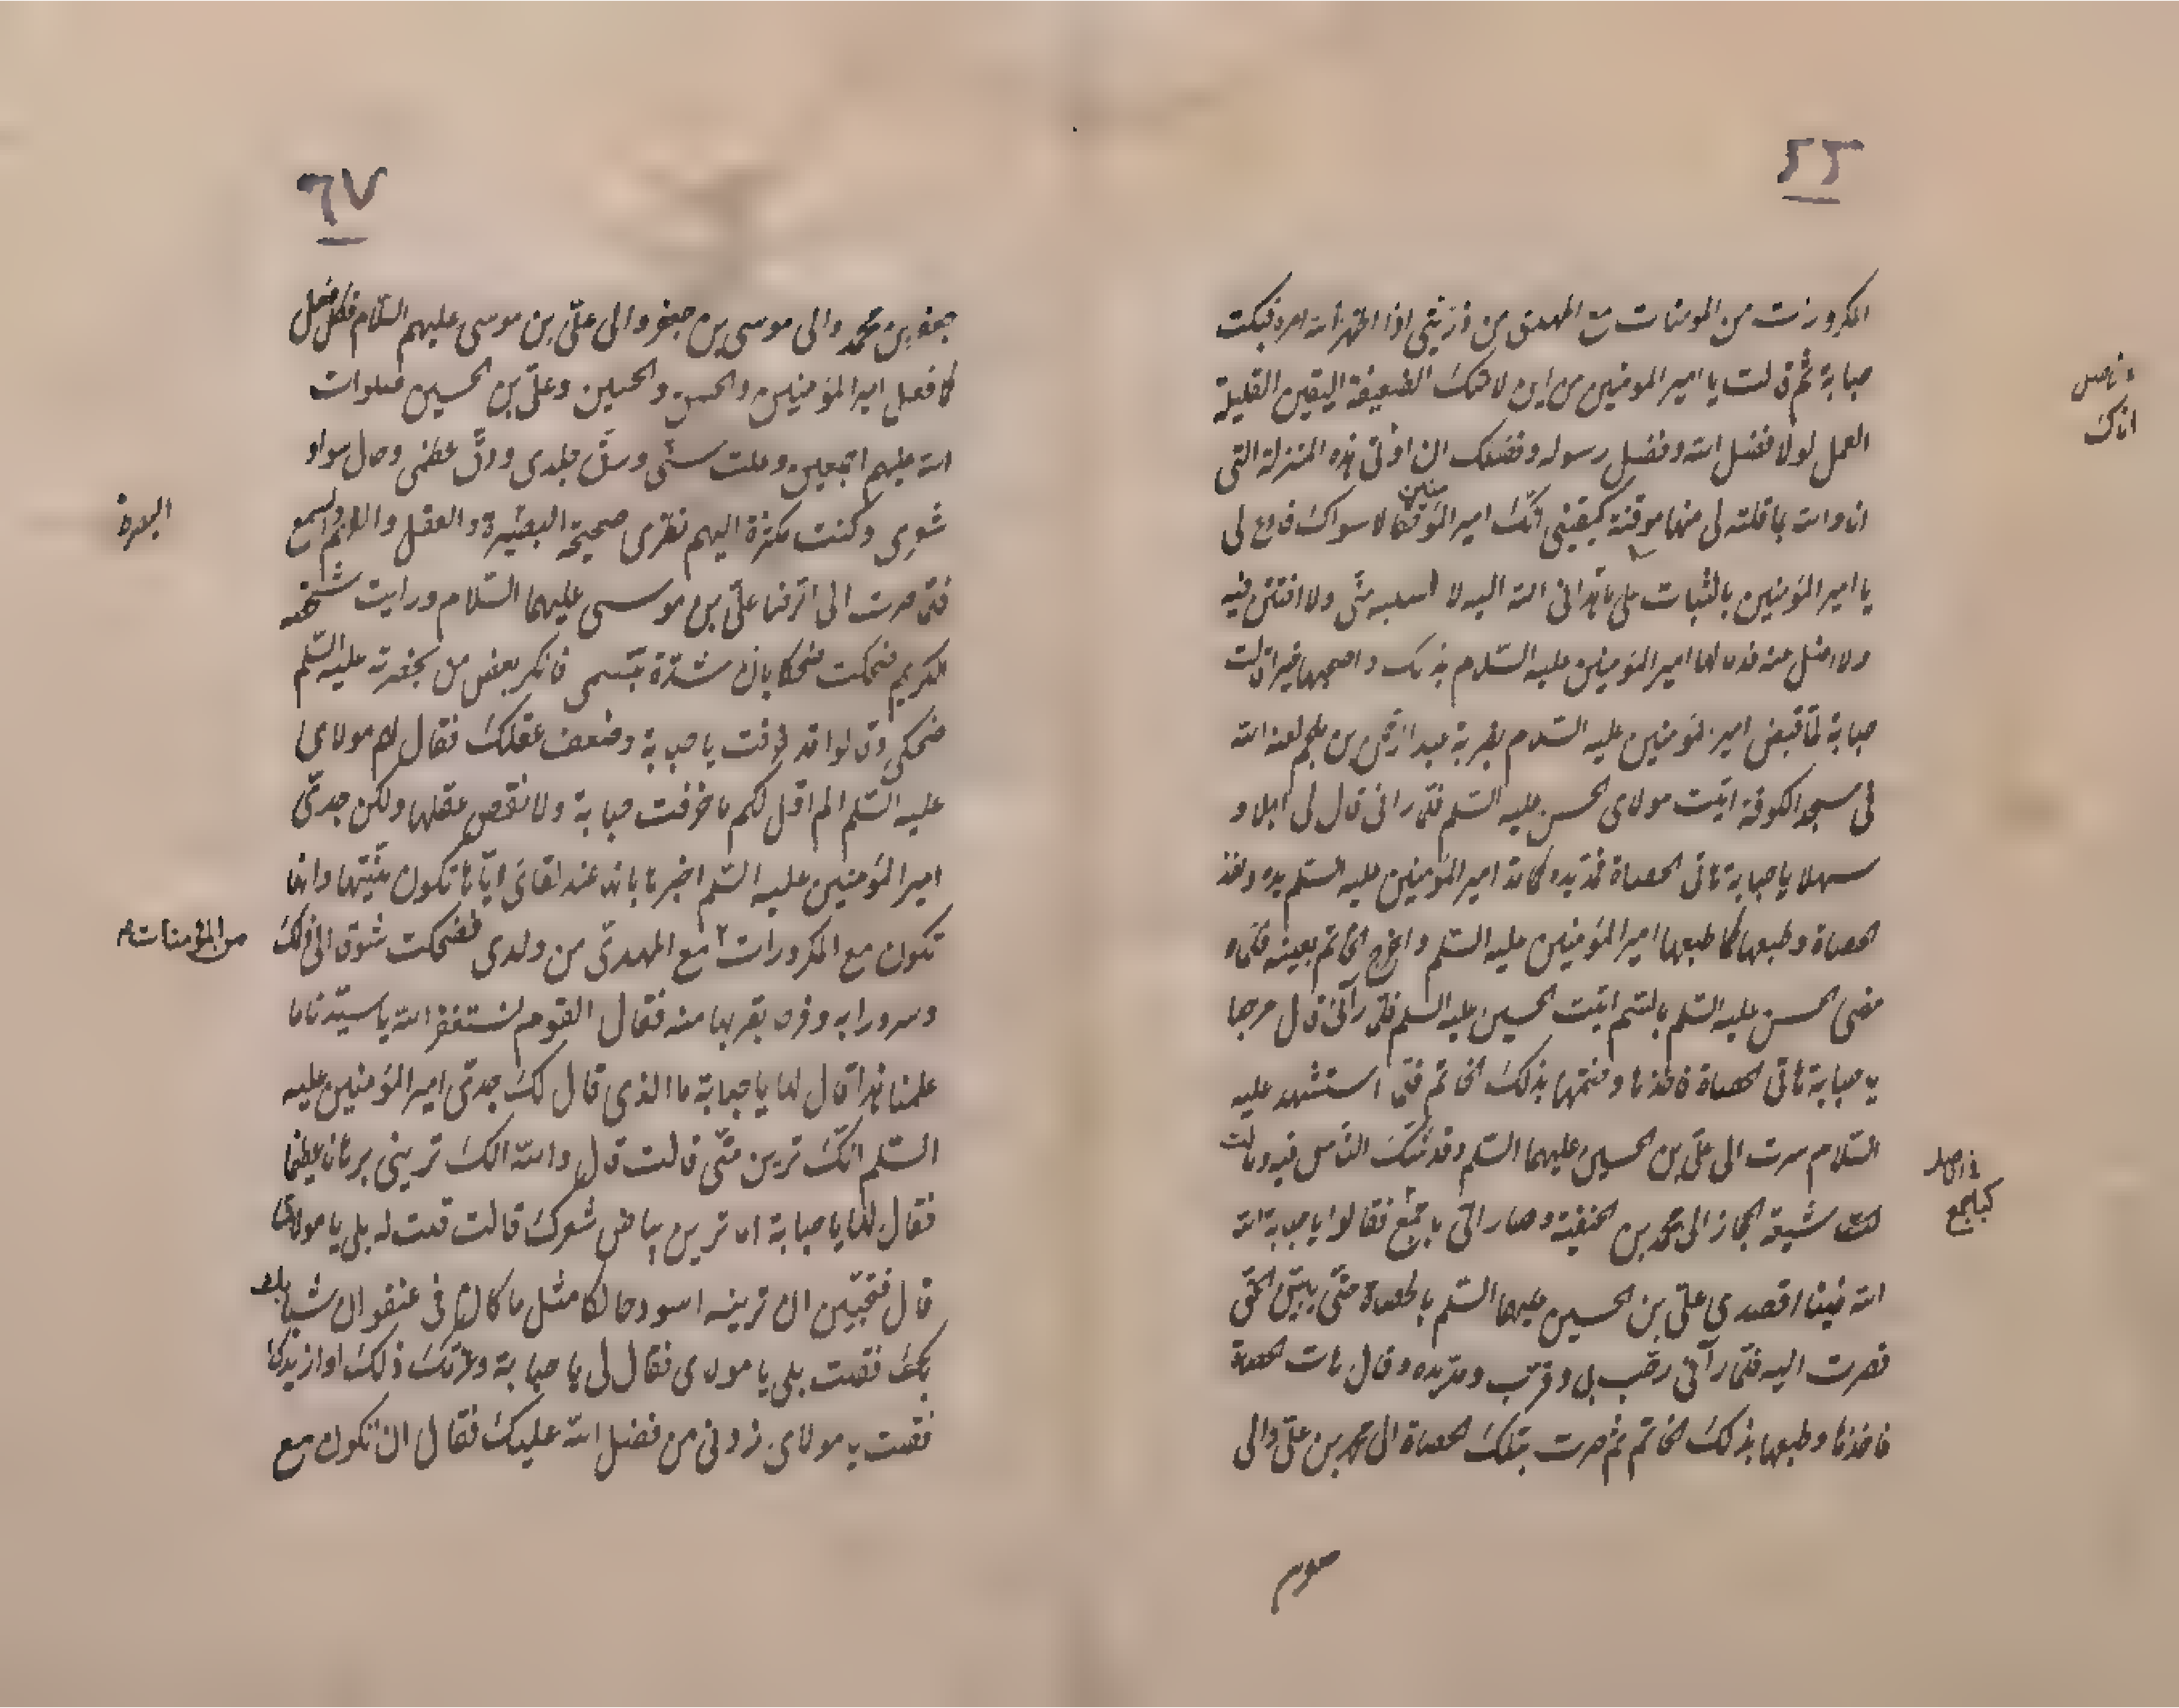 ٦٦
المكرورات من المؤمنات مع المهدى من ذريتى اذا اظهر الله امره فبكت
حبابة ثم قالت يا امير المؤمنين من اين لامتك الضعيفة اليقين القليلة
العمل لولا فضل الله وفضل رسوله وفضلك ان اوتى هذه المنزلة التى
انا والله بما قلته لى منها موقنة كيقينى انك امير المؤمنين حقا لا سواك فادع لى
يا امير المؤمنين بالثبات على ما هدانى الله اليه لا اسلبه منى ولا افتتن فيه
ولا اضل عنه فدعا لها امير المؤمنين عليه السلام بذلك واصحبها خيرا قالت
حبابة لما قبض امير المؤمنين عليه السلام بضربة عبد الرحمن بن ملجم لعنه الله
فى مسجد الكوفة اتيت مولاى الحسن عليه السلم فلما رانى قال لى اهلا و
سهلا يا حبابة هاتى الحصاة فمد يده كما مد امير المؤمنين عليه السلم يده واخذ
الحصاة وطبعها كما طبعها امير المؤمنين عليه السلم واخرج الخاتم بعينه فلما
مضى الحسن عليه السلم بالسم اتيت الحسين عليه السلم فلما رآنى قال مرحبا
يا حبابة هاتى الحصاة فاخذها وختمها بذلك الخاتم فلما استشهد عليه
السلام صرت الى على بن الحسين عليهما السلم وقد شك الناس فيه ومالت
شيعة الحجاز الى محمد بن الحنفية وصار الى فقالوا يا حبابة الله
الله فينا اقصدى على بن الحسين عليهما السلم بالحصاة حتى يتبين الحق
فصرت اليه فلما رآنى رحب بى وقرب ومد يده وقال هات الحصاة
فاخذها وطبعها بذلك الخاتم ثم صرت بتلك الحصاة الى محمد بن على والى
انك
٦٧
جعفر بن محمد والى موسى بن جعفر والى على بن موسى عليهم السلام فكل فعل
كما فعل امير المؤمنين والحسن والحسين وعلى بن الحسين صلوات
الله عليهم اجمعين وعلت سنى ورق جلدى ودق عظمى وحال سواد
شعرى وكنت بكثرة اليهم نظرى صحيحة البصيرة والعقل والفهم والسمع
فلما صرت الى الرضا على بن موسى عليهما السلام ورايت شخصه
الكريم ضحكت ضحكا بان شدة تبسمى فانكر بعض من بحضرته عليه السلم
ضحكى وقالوا قد خرفت يا حبابة وضعف عقلك فقال لهم مولاى
عليه السلم الم اقل لكم ما خرفت حبابة ولا نقص عقلها ولكن جدى
امير المؤمنين عليه السلم اخبرها بانه عند لقائى اياها تكون منيتها وانها
تكون مع المكرورات مع المهدى من ولدى فضحكت شوقا الى ذلك
وسرورا به وفرحا بقربها منه فقال القوم نستغفر الله يا سيدنا ما
علمنا هذا قال لها يا حبابة ما الذى قال لك جدى امير المؤمنين عليه
السلم انك ترين منى قالت قال والله انك ترينى برهانا عظيما
فقال لها يا حبابة اما ترين بياض شعرك قالت قلت له بلى يا مولاى
قال فتحبين ان ترينه اسود حالكا مثل ما كان فى عنفوان شبابك
فقلت بلى يا مولاى فقال لى يا حبابة ويجزيك ذلك او ازيدك
فقلت يا مولاى زدنى من فضل الله عليك فقال ان تكون مع
البصرة
من المؤمنات